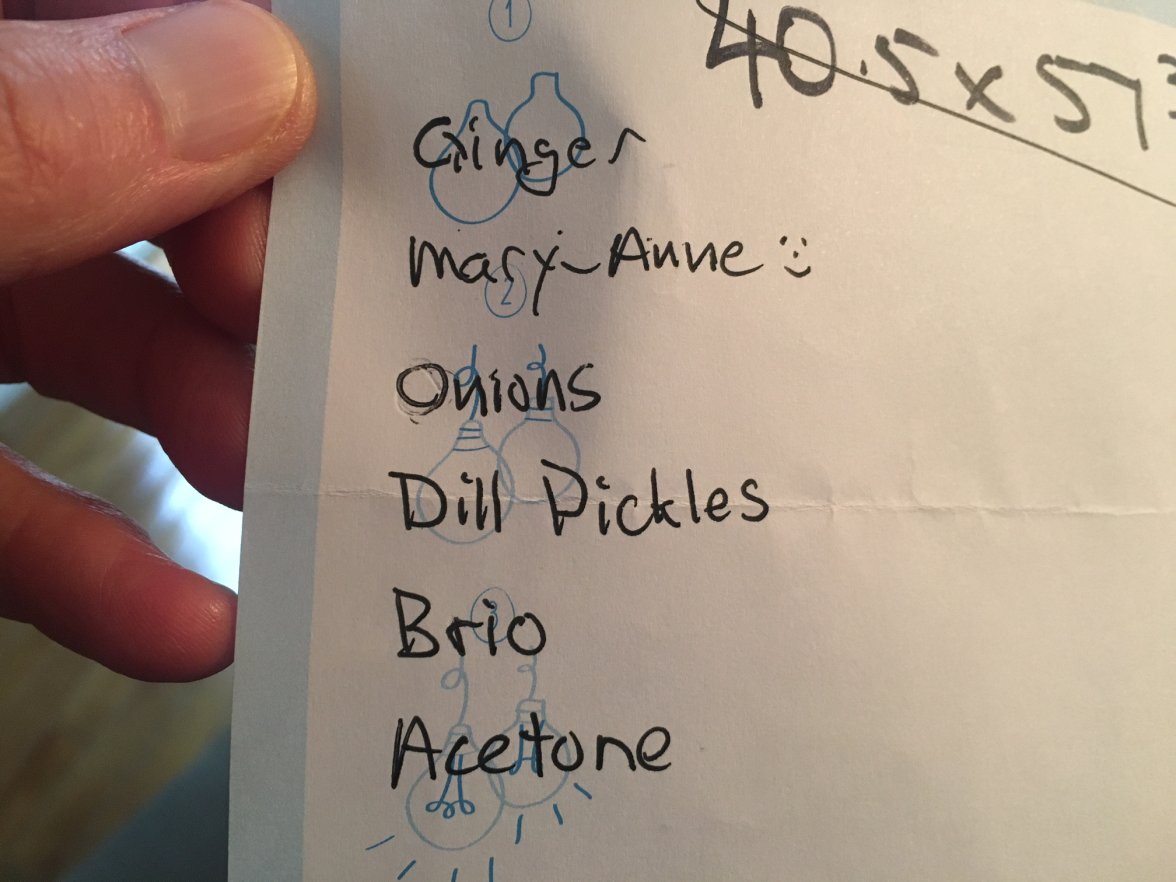 1
40.5 x 57
Ginger
Mary-Anne :)
2
Onions
Dill Pickles
3
Brio
Acetone